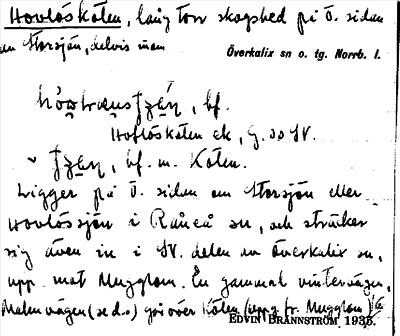 Hovlöskölen, lång torr skogshed på Ö. sidan
om Storsjön, delvis inom
Överkalix sn o. tg. Norrb. l.
, bf.
Hoflöskölen ek, G. 30 SV.
, bf. m. Kölen.
Ligger på Ö. sidan om Storsjön eller
Hovlössjön i Råneå sn, och sträcker
sig även in i SV. delen av Överkalix sn,
upp mot Mugglom. En gammal vintervägen,
Malenvägen (se d.o.) går över Kölen (upp t. Mugglom)
EDVIN BRÄNNSTRÖM 1935.